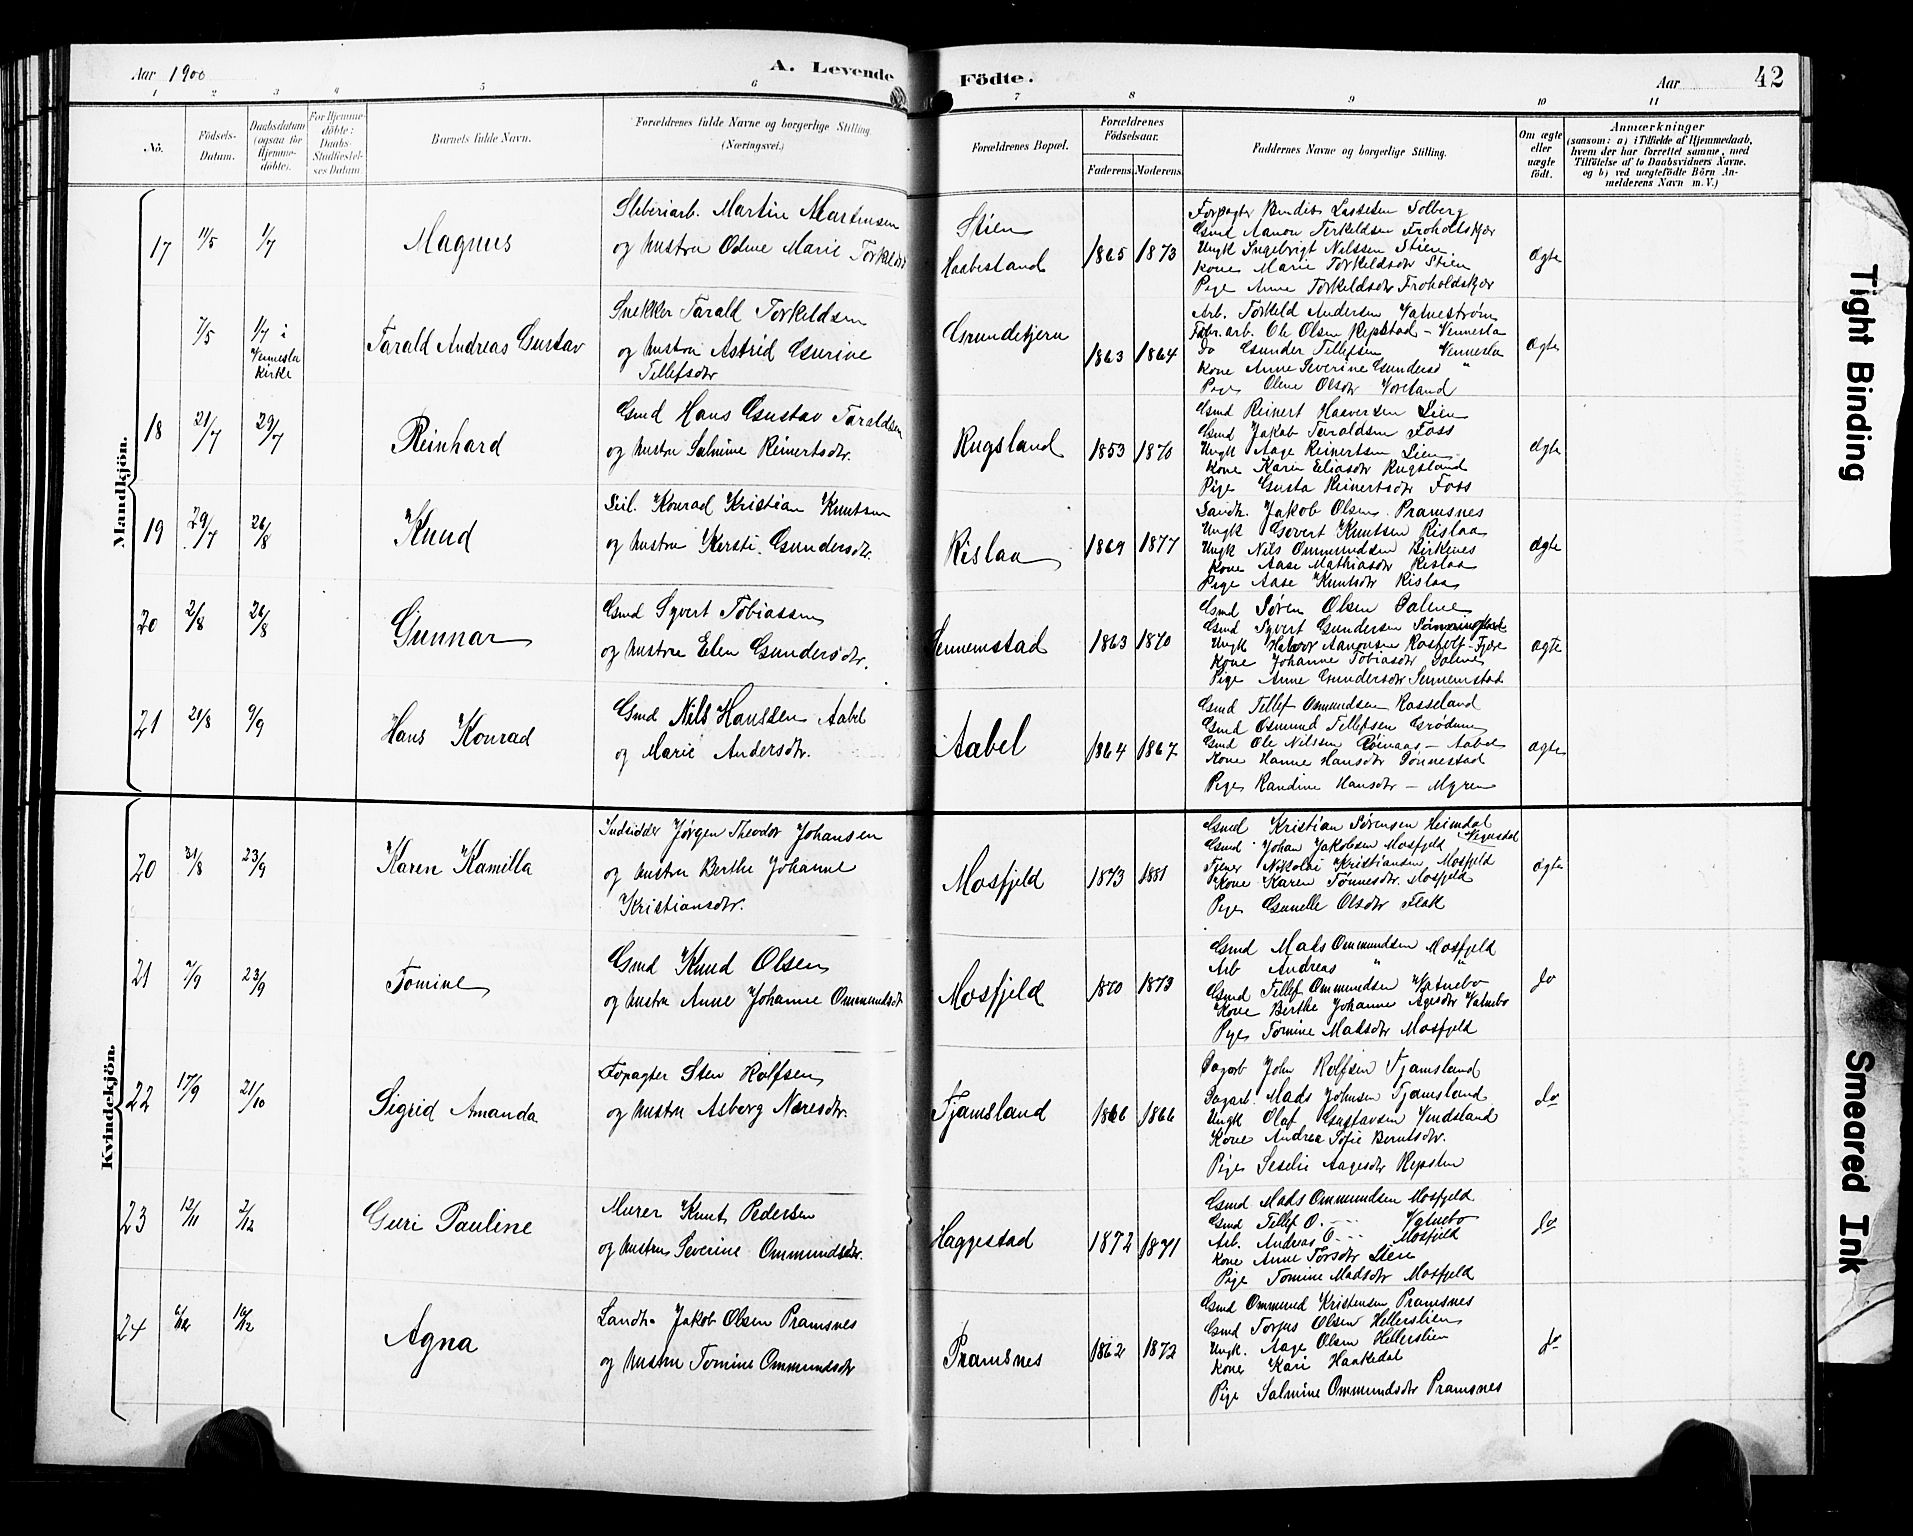 Aar 1900
A. Levende
Födte.
Aar
42
1 2 3 4 5 6 7 8 9 10 11
Nö.
Födsels-Datum.
Daabsdatum (ogsaa for Hjemmedöbte).
For Hjemmedöbte: Daabs-Stadfæstelses Datum.
Barnets fulde Navn.
Forældrenes fulde Navne og borgerlige Stilling (Næringsvei.)
Forældrenes Bopæl.
Forældrenes Födselsaar.
Faderens Moderens
Faddernes Navne og borgerlige Stilling.
Om ægte eller uægte födt.
Anmærkninger
(saasom: a) i Tilfælde af Hjemmedaab, hvem der har forrettet samme, med Tilföielse af to Daabsvidners Navne, og b) ved uægtefödte Börn Anmelderens Navn m. V.)
Mandkjön.
17 11/5 1/7 Magnus
Sliberiarb. Martin Martinsen
og hustru Oline Marie Torkildsd
Stien
Haabestand
1865 1873
Forpagter Bendik Lassesen Solberg
Gmd Aanon Terkeldsen Froholtskjær
Ungk Ingebrigt Nilssen Stien
Kone Marie Torkildsdtr Stien
Pige Anne Torkeldsdtr Froholdskjær
ægte
7/5 1/7 i Vennesla Kirke
Tarald Andreas Gustav
Snekker Tarald Torkeldsen
og hustru Astrid Gurine
Tellefsdtr
Grundetjern
1863 1864
Arb. Torkeld Andersen Vatnestrøm
Fabr.arb. Ole Olsen Repstad - Vennesla
Do Gunder Tellefsen Vennesla
Kone Anne Severine Gundersd "
Pige Oline Olsdtr Voreland
ægte
18 21/7 29/7 Reinhard
Gmd Hans Gustav Taraldsen
og hustru Salmine Reinertsdtr.
Rugsland
1853 1870
Gmd Reinert Haaversen Lien
Gmd Jakob Taraldsen Foss
Ungk Aage Reinertsen Lien
Kone Karen Eliasdtr Rugsland
Pige Gusta Reinertsdtr Foss
ægte
19 29/7 26/8 Knud
Seil. Konrad Kristian Knutsen
og hustru Kersti Gundersdtr.
Rislaa
1869 1877
Landh. Jakob Olsen Pramsnes
Ungk Govert Knutsen Rislaa
Ungk Nils Ommundsen Birkenes
Kone Aase Mathiasdtr Rislaa
Pige Aase Knutsdtr Rislaa
ægte
20 2/8 26/8 Gunnar
Gmd Syvert Tobiassen
og hustru Elen Gundersdtr.
Sennemstad
1863 1870
Gmd Søren Olsen Dalene
Gmd Syvert Gundersen
Ungk Halvor Aanonsen Rosholt - Fjære
Kone Johanne Tobiasdtr Dalene
Pige Anne Gundersdtr Sennemstad
ægte
21 21/8 9/9 Hans Konrad
Gmd Nils Hanssen Aabel
og Marie Andersdtr.
Aabel
1864 1867
Gmd Tellef Ommundsen Rosseland
Gmd Osmund Tellefsen Grødum
Gmd Ole Nilssen Røinaas - Aabel
Kone Hanne Hansdtr Dønnestad
Pige Randine Hansdtr - Myren
ægte
Kvindekjön.
20 31/8 23/9 Karen Kamilla
Indsidder Jørgen Theodor Johansen
og hustru Berthe Johanne
Kristiansdtr.
Mosfjeld
1873 1881
Gmd Kristian Sørensen Heimdal
Vegusdal
Gmd Johan Jakobsen Mosfjeld
Tjener Nikolai Kristiansen Mosfjeld
Kone Karen Tønnesdtr. Mosfjeld
Pige Gunelle Olsdtr Flak
ægte
21 7/9 23/9 Tomine
Gmd Knud Olsen
og hustru Anne Johanne Ommundsdt
Mosfjeld
1870 1873
Gmd Mads Ommundsen Mosfjeld
Arb Andreas " "
Gmd Tellef Ommundsen Vatnebo
Kone Berthe Johanne Agesdtr Vatnebo
Pige Tomine Madsdtr Mosfjeld
do
22 17/9 21/10 Sigrid Amanda
Fopagter Sten Rolfsen
og hustru Asborg Næresdtr.
Tjamsland
1866 1866
Dagarb John Rolfsen Tjamsland
Dagarb. Mads Johnsen Tjamsland
Ungk Olaf Gustavsen Vindsland
Kone Andrea Sofie Berntsdtr.
Pige Seselie Aagesdtr Repsten
do
23 12/11 2/12 Guri Pauline
Murer Knut Pedersen
og hustru Severine Ommundsdtr.
Haggestad
1872 1871
Gmd Mads Ommundsen Mosfjeld
Gmd Tellef O. - - - Vatnebo
Arb. Andreas O - - - Mosfjeld
Kone Anne Torsdtr Lien
Pige Tomine Madsdtr Mosfjeld
do
24 6/12 19/12 Agna
Landh. Jakob Olsen Pramsnes
og hustru Tomine Ommundsdtr
Pramsnes
1862 1872
Gmd Ommund Kristensen Pramsnes
Gmd Torjus Olsen Hellerslien
Ungk. Aage Olsen Hellerslien
Kone Kari Haakedal
Pige Salmine Ommundsdtr Pramsnes
do
Tight Binding
Smeared Ink